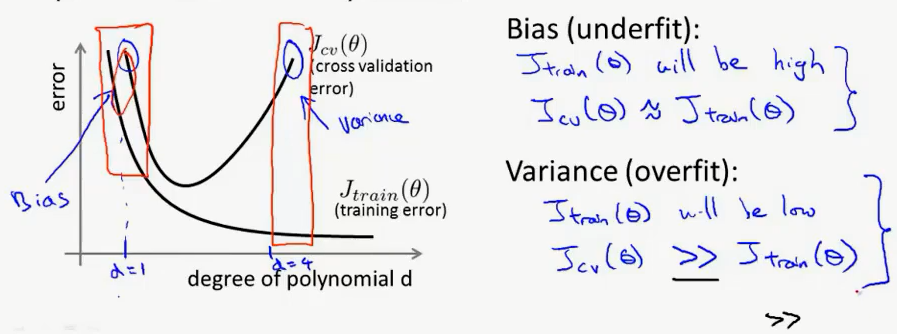 error
J_cv(θ)
(cross validation
error)
variance
Bias
J_train(θ)
(training error)
d=1
d=4
degree of polynomial d
Bias (underfit):
J_train(θ) will be high
J_cv(θ) ≈ J_train(θ)
Variance (overfit):
J_train(θ) will be low
J_cv(θ) >> J_train(θ)
>>